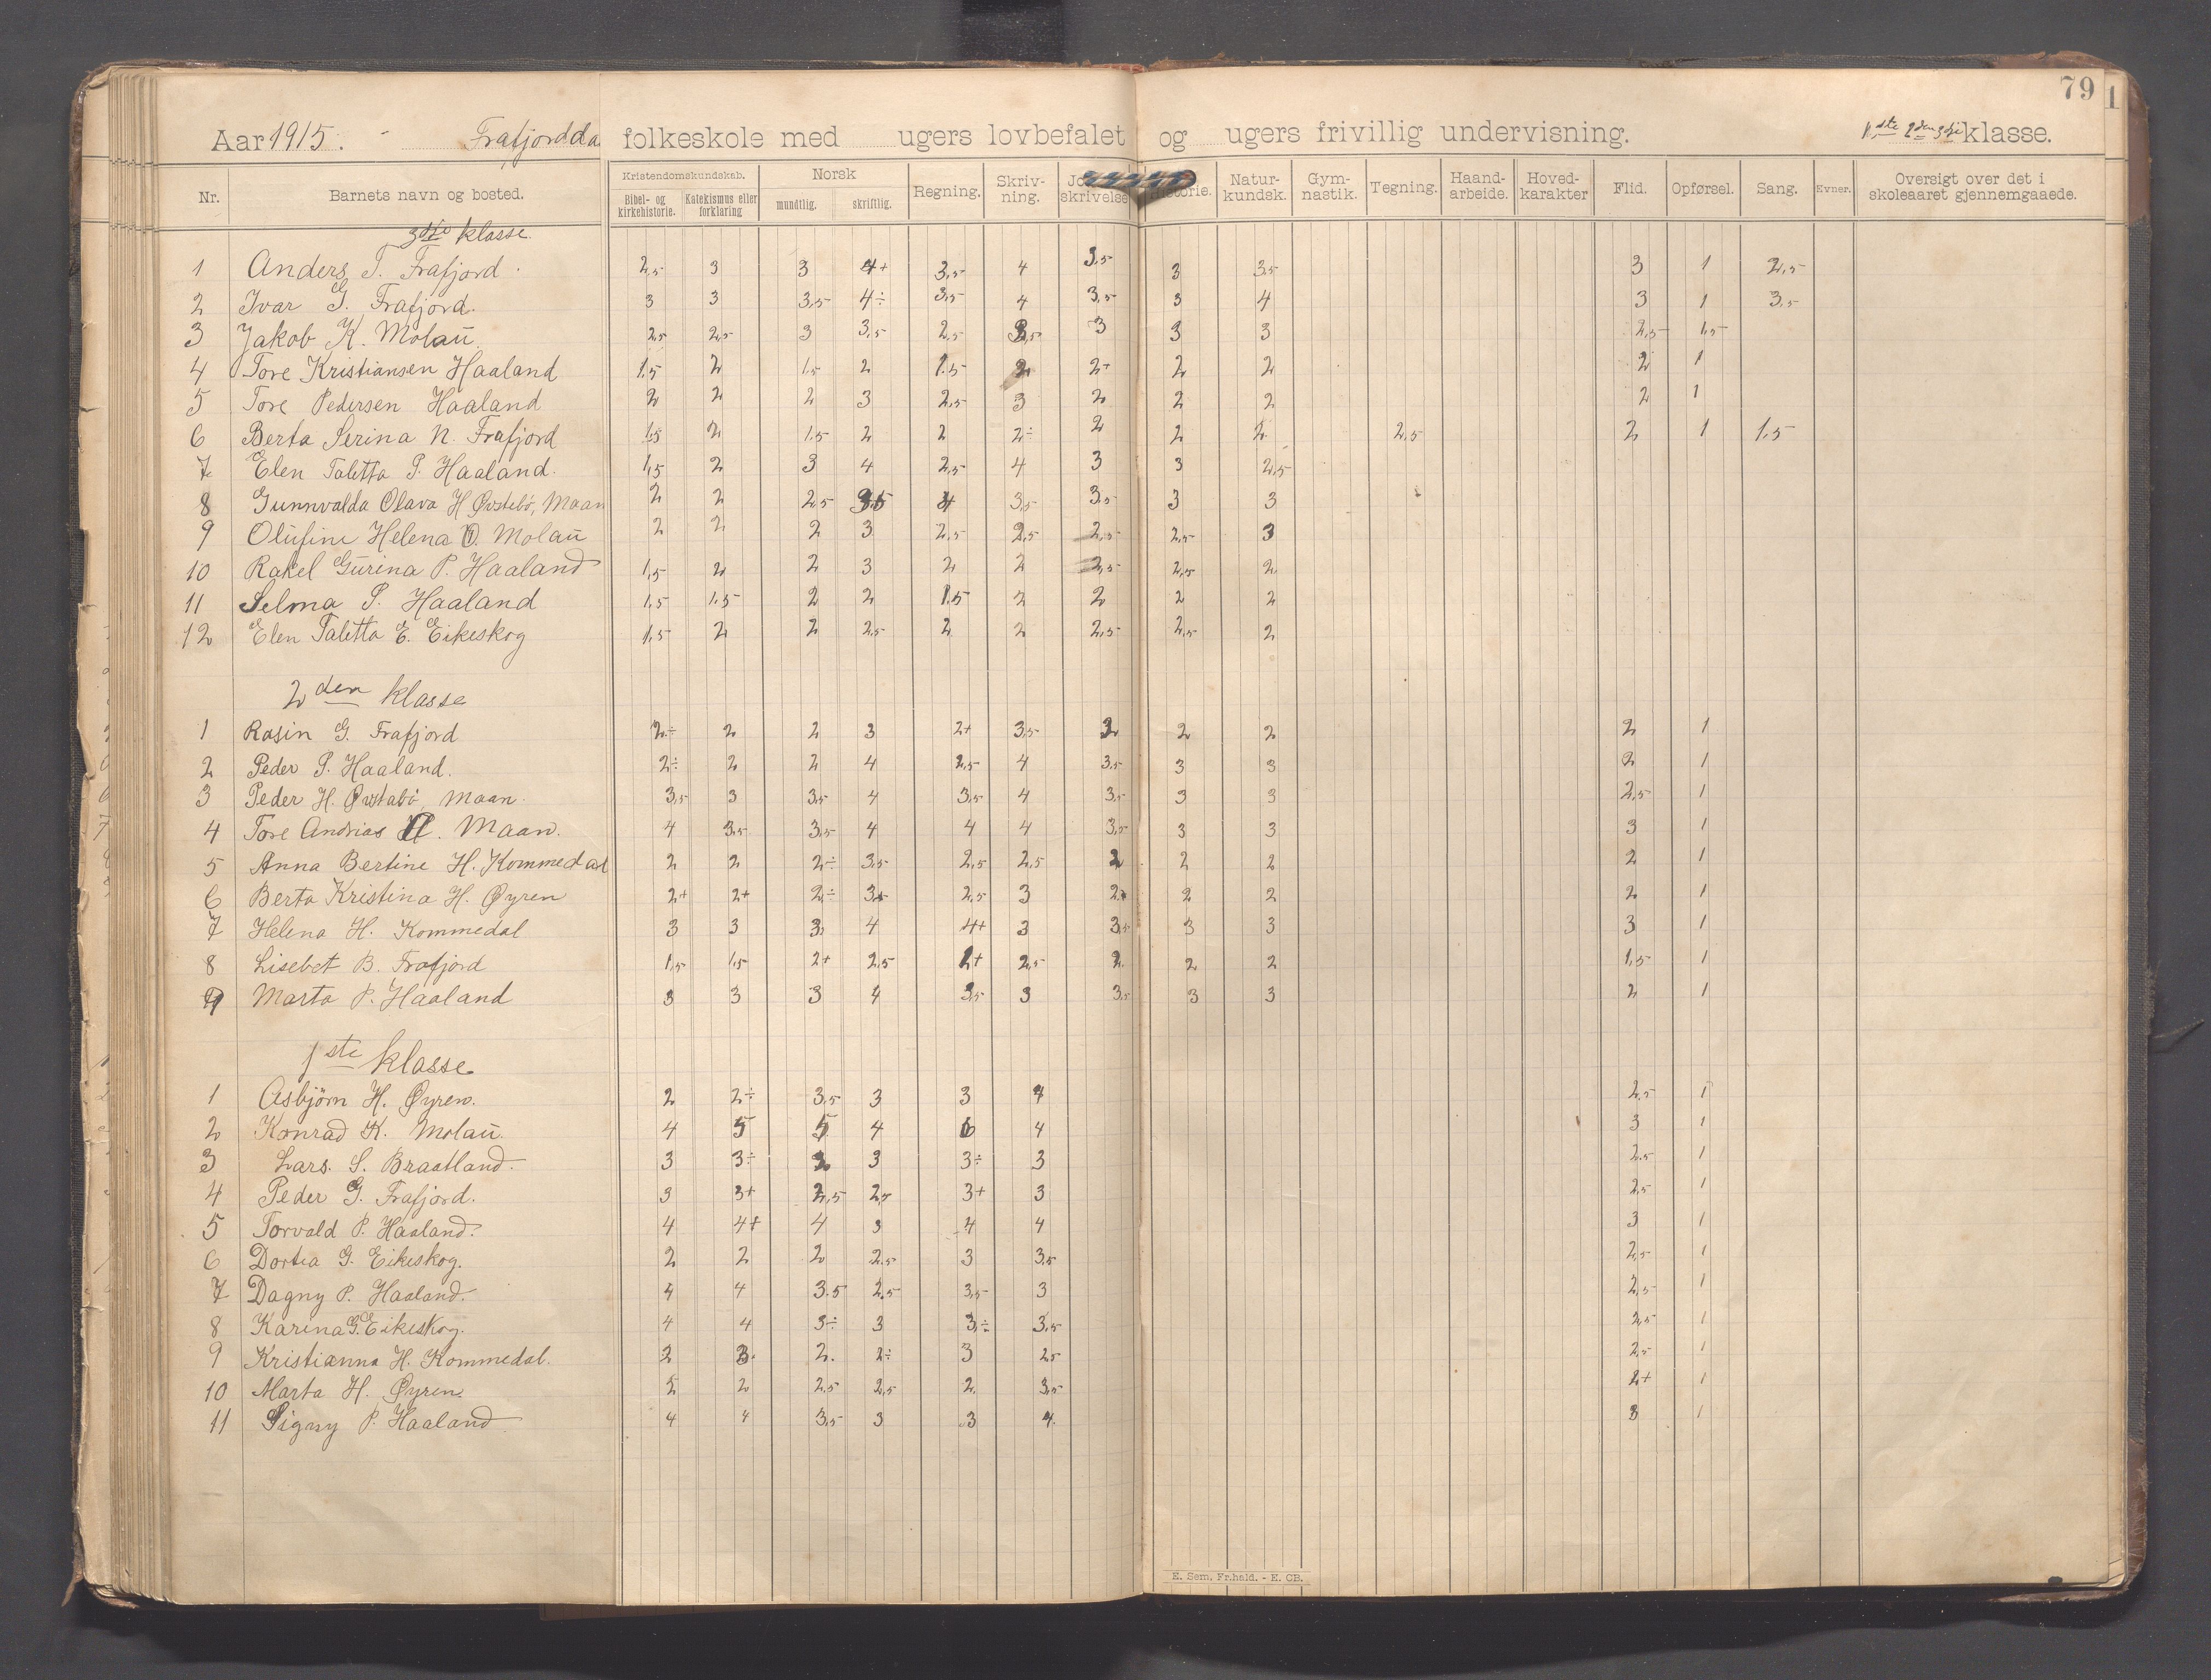 79
Aar 1915. - Frafjordda folkeskole med ugers lovbefalet og ugers frivillig undervisning. 1ste 2den 3dje klasse.
Nr. Barnets navn og bosted. Kristendomskundskab. Bibel- og kirkehistorie. Katekismus eller forklaring Norsk mundtlig. skriftlig. Regning. Skriv-ning. skrivelse Historie. Natur-kundsk. Gym-nastik. Tegning. Haand-arbeide. Hoved-karakter Flid. Opførsel. Sang. Evner. Oversigt over det i skoleaaret gjennemgaaede.
3dje klasse.
1 Anders T. Frafjord. 2,5 3 3 4+ 3,5 4 3,5 3 3,5 3 1 2,5
2 Ivar G. Frafjord. 3 3 3,5 4÷ 3,5 4 3,5 3 4 3 1 3,5
3 Jakob K. Molaŭ. 2,5 2,5 3 3,5 2,5 3,5 3 3 3 2,5 1,5
4 Tore Kristiansen Haaland 1,5 2 1,5 2 1,5 2 2+ 2 2 2 1
5 Tore Pedersen Haaland 2 2 2 3 2,5 3 2 2 2 2 1
6 Berta Serina N. Frafjord 1,5 2 1,5 2 2 2÷ 2 2 2 2,5 2 1 1,5
7 Elen Taletta P. Haaland. 1,5 2 3 4 2,5 4 3 3 2,5
8 Gunnvalda Olava H Øvstebö, Maan 2 2 2,5 3,5 4 3,5 3,5 3 3
9 Olŭfine Helena O. Molaŭ 2 2 2 3 2,5 2,5 2,5 2,5 3
10 Rakel Gŭrina P. Haaland 1,5 2 2 3 2 2 2,5 2,5 2
11 Selma P. Haaland 1,5 1,5 2 2 1,5 2 2 2 2
12 Elen Taletta E. Eikeskog 1,5 2 2 2,5 2 2 2,5 2,5 2
2den klasse
1 Rasin G. Frafjord 2÷ 2 2 3 2+ 3,5 2 2 2 2 1
2 Peder P. Haaland. 2÷ 2 2 4 2,5 4 3,5 3 3 2 1
3 Peder H. Øvstabö, Maan. 3,5 3 3,5 4 3,5 4 3,5 3 3 2,5 1
4 Tore Andrias . Maan. 4 3,5 3,5 4 4 4 3,5 3 3 3 1
5 Anna Bertine H. Kommedal 2 2 2÷ 3,5 2,5 2,5 2 2 2 2 1
6 Berta Kristina H. Øyren 2+ 2+ 2÷ 3+ 2,5 3 2+ 2 2 2 1
7 Helena H. Kommedal 3 3 3 4 4+ 3 3,5 3 3 3 1
8 Lisebet B. Frafjord 1,5 1,5 2+ 2,5 2+ 2,5 2 2 2 1,5 1
9 Marta P. Haaland 3 3 3 4 3,5 3 3,5 3 3 2 1
1ste klasse
1 Asbjörn H. Øyren. 2 2÷ 3,5 3 3 4 2,5 1
2 Konrad K. Molaŭ. 4 5 5 4 6 4 3 1
3 Lars. S. Braatland. 3 3÷ 3 3 3÷ 3 2,5 1
4 Peder G. Frafjord. 3 3+ 2,5 2,5 3+ 3 2,5 1
5 Torvald P. Haaland. 4 4+ 4 3 4 4 3 1
6 Dortea G. Eikeskog. 2 2 2 2,5 3 3,5 2,5 1
7 Dagny P. Haaland. 4 4 3.5 2,5 3,5 3 2,5 1
8 Karina G. Eikeskog. 4 4 3÷ 3 3÷ 3,5 2,5 1
9 Kristianna H. Kommedal. 2 3. 2. 2÷ 3 2,5 2,5 1
10 Marta H. Øyren. 2 2 2,5 2,5 2. 3,5 2+ 1
11 Signy P. Haaland 4 4 3,5 3 3 4. 3 1
E. Sem, Fr.hald. - E. CB.